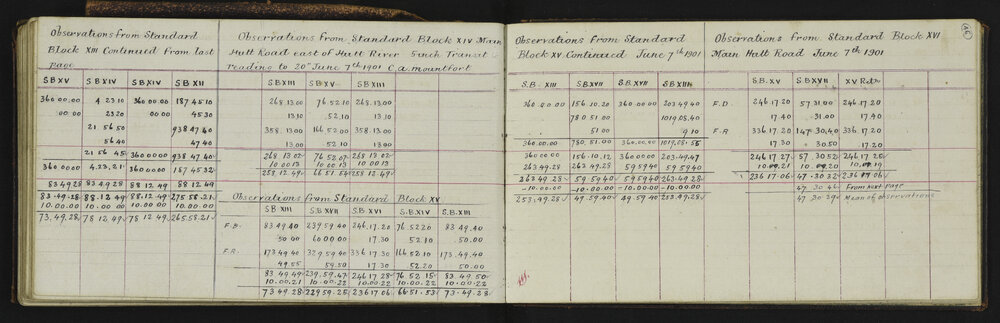 Observations from Standard
Block XIII Continued from last
page
S B XV S B XIV S B XVI S B XII
360 00.00 4 23 10 360 00.00 187 45.10
00 00 23 20 00.00 45.30
21 56 50 938 47 40
56 40 47 40
21 56 45 360 00 00 938 47 40
360 00 00 4.23.21 360 00 00 187 45 32
83 49 28 83 49 28 88 12 49 88 12 49
83-49-28 88-12 49 88.12 49 275 58-21
10.00.00 10.00 00 10.00.00 10.00.00
73.49.28 78 12 49 78 12 49 265.58.21
Observations from Standard Block XIV Main
Hutt Road east of Hutt River 5 inch Transit
reading to 20" June 7th 1901 C.A. Mountfort
S B XIII S B XV S B XIII
268.13.00 76 52.10 268.13.00
13.10 52.10 13.10
358.13.00 166 52 00 358.13.00
13.00 52.10 13.00
268 13 02 76 52 07 268 13 02
10 00 13 10 00 13 10 00 13
258.12.49 66 51 54 258 12 49
Observations from Standard Block XV
S B XIII S B XVII S B XVI S B XIV S B XIII
F.D. 83 49 40 239 59 40 246.17.20 76 52 20 83 49.40
50 40 60 00 00 17.30 52.10 50.00
F.R. 173 49 40 329 59 40 336 17 30 166 52 10 173.49.40
49.55 59.50 17 30 52.20 50.00
83 49 49 239.59.47 246 17 28 76 52 15 83 49 50
10.00.21 10.00.22 10.00.22 10.00.22 10.00.22
73 49-28 229 59-25 236 17 06 66 51-53 73-49-28
Observations from Standard
Block XV Continued June 7th 1901
S.B. XIII S B XVII S B XVII S B XIII
360.00.00 156.10.20 360 00.00 203 49 40
780 51 00 1019.08.40
51.00 9 10
360.00.00 780.51.00 360.00.00 1019.08.55
360 00 00 156.10.12 360 00 00 203-49-47
263.49.28 263 49 28 59 59 40 59 59 40
263 49 28 59 59 40 59 59 40 263-49-28
10-00.00 10.00.00 10.00.00 10.00.00
253.49.28 49-59-40 49 59 40 253.49.28
Observations from Standard Block XVI
Main Hutt Road June 7th 1901
S B. XV S B. XVII XV Retn
F.D. 246 17 20 57 31.00 246.17.20
17.40 31.00 17.40
F.R 336.17.20 147 30.40 336 17.20
17.30 30.50 17.20
246 17.27 57 30 52 246 17-25
10.00.21 10 00.20 10.00.19
236 17 06 47-30-32 236 17 06
47 30 26 From next page
47 30 29 Mean of observations